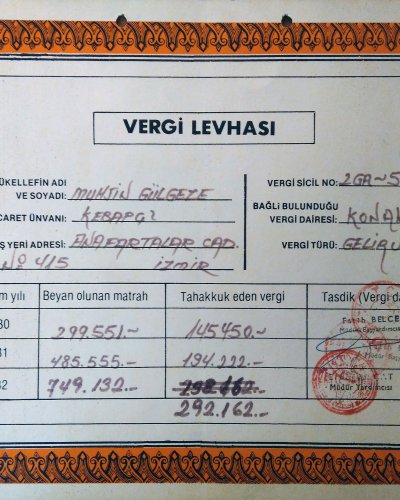 VERGİ LEVHASI
ÜKELLEFİN ADI
VE SOYADI: MUHSİN GÜLGEZE
CARET ÜNVANI: KEBAPÇI
Ş YERİ ADRESİ: ANAFARTALAR CAD.
Nº 415 İZMİR
VERGİ SİCİL NO: 2GA-5
BAĞLI BULUNDUĞU
VERGİ DAİRESİ: KONA
VERGİ TÜRÜ: GELİ
m yılı Beyan olunan matrah Tahakkuk eden vergi Tasdik (Vergi da
80 299.551.- 145450.-
Fatih BELCE
81 485.555.- 194.222.-
82 749.132.-
Müdür Yardımcısı
292.162.-